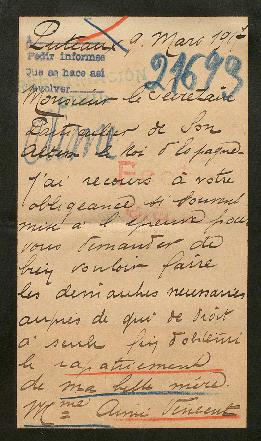 Puteaux 9 Mars 191
Pedir informes
Que se hace así
Devolver
21693
Monsieur le Secrétaire
Particulier de Son
le Roi d'Espagne
j'ai recours à votre
obligeance si souvent
mise à l'épreuve pour
vous demander de
bien vouloir faire
les démarches nécessaires
auprès de qui de droit
à seule fin d'obtenir
le rapatriement
de ma belle mère.
Mme Vincent